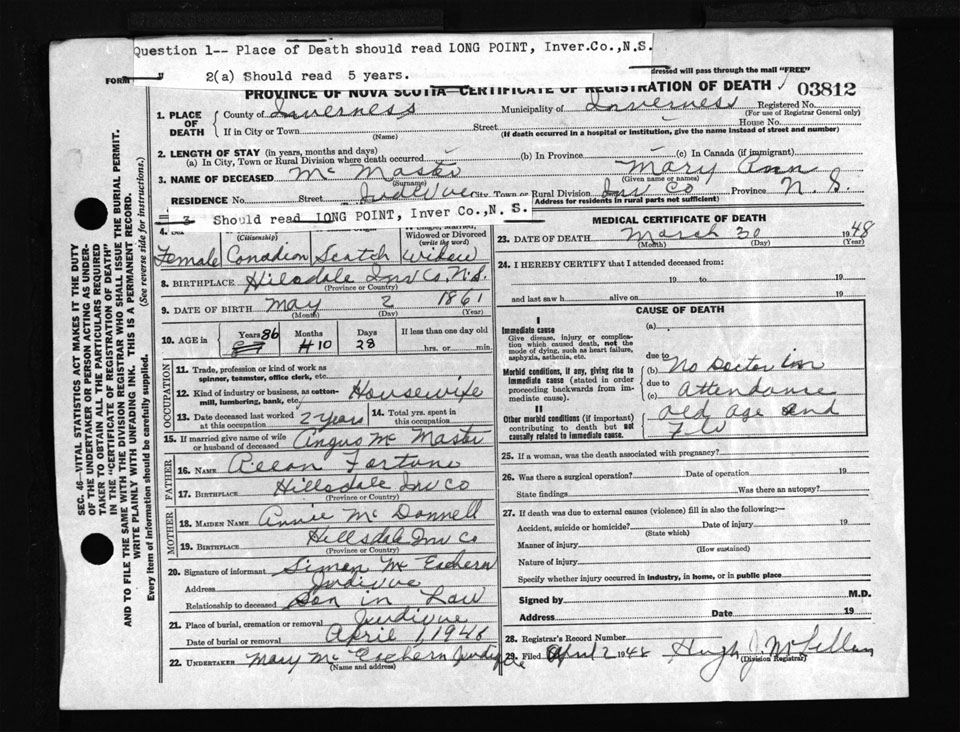 Question 1-- Place of Death should read LONG POINT, Inver.Co.,N.S.
" 2(a) Should read 5 years.
FORM
dressed will pass through the mail "FREE"
PROVINCE OF NOVA SCOTIA—CERTIFICATE OF REGISTRATION OF DEATH
03812
1. PLACE OF DEATH
County of Inverness Municipality of Inverness Registered No.
(For use of Registrar General only)
If in City or Town Street House No.
(Name) (If death occurred in a hospital or institution, give the name instead of street and number)
2. LENGTH OF STAY (in years, months and days)
(a) In City, Town or Rural Division where death occurred (b) In Province (c) In Canada (if immigrant)
3. NAME OF DECEASED Mc Master Mary Ann
(Surname) (Given name or names)
RESIDENCE No. Street Judique City, Town or Rural Division Inv Co Province N. S.
Address for residents in rural parts not sufficient)
3 Should read LONG POINT, Inver Co.,N. S.
4. Sex
(Citizenship)
Widowed or Divorced
(write the word)
Female Canadian Scotch Widow
8. BIRTHPLACE Hillsdale Inv Co. N.S.
(Province or Country)
9. DATE OF BIRTH May 2 1861
(Month) (Day) (Year)
10. AGE in Years 86 Months 10 Days 28 If less than one day old
hrs. or min.
OCCUPATION
11. Trade, profession or kind of work as
spinner, teamster, office clerk, etc.
12. Kind of industry or business, as cotton-
mill, lumbering, bank, etc. Housewife
13. Date deceased last worked
at this occupation 2 years
14. Total yrs. spent in
this occupation
15. If married give name of wife
or husband of deceased Angus Mc Master
FATHER
16. NAME Fortune
17. BIRTHPLACE Hillsdale Inv Co
(Province or Country)
MOTHER
18. MAIDEN NAME Annie Mc Donnell
19. BIRTHPLACE Hillsdale Inv Co
(Province or Country)
20. Signature of informant Simon Mc Eachern
Address Judique
Relationship to deceased Son in Law
21. Place of burial, cremation or removal Judique
Date of burial or removal April 1, 1948
22. UNDERTAKER Mary Mc Eachern Judique
(Name and address)
MEDICAL CERTIFICATE OF DEATH
23. DATE OF DEATH March 30 1948
(Month) (Day) (Year)
24. I HEREBY CERTIFY that I attended deceased from:
19 to 19
and last saw h alive on 19
CAUSE OF DEATH
I
Immediate cause
Give disease, injury or complica-
tion which caused death, not the
mode of dying, such as heart failure,
asphyxia, asthenia, etc.
(a)
due to
Morbid conditions, if any, giving rise to
immediate cause (stated in order
proceeding backwards from im-
mediate cause).
(b) No Doctor in
due to
(c) Attendance
II
Other morbid conditions (if important)
contributing to death but not
causally related to immediate cause.
old age and
Flu
25. If a woman, was the death associated with pregnancy?
26. Was there a surgical operation? Date of operation 19
State findings Was there an autopsy?
27. If death was due to external causes (violence) fill in also the following:—
Accident, suicide or homicide? Date of injury 19
(State which)
Manner of injury
(How sustained)
Nature of injury
Specify whether injury occurred in industry, in home, or in public place
Signed by M.D.
Address Date 19
28. Registrar's Record Number
29. Filed April 2 1948 Hugh J. McLellan
(Division Registrar)
SEC. 46—VITAL STATISTICS ACT MAKES IT THE DUTY
OF THE UNDERTAKER OR PERSON ACTING AS UNDER-
TAKER TO OBTAIN ALL THE PARTICULARS REQUIRED
IN THE "CERTIFICATE OF REGISTRATION OF DEATH"
AND TO FILE THE SAME WITH THE DIVISION REGISTRAR WHO SHALL ISSUE THE BURIAL PERMIT.
WRITE PLAINLY WITH UNFADING INK. THIS IS A PERMANENT RECORD.
Every item of information should be carefully supplied. (See reverse side for instructions.)